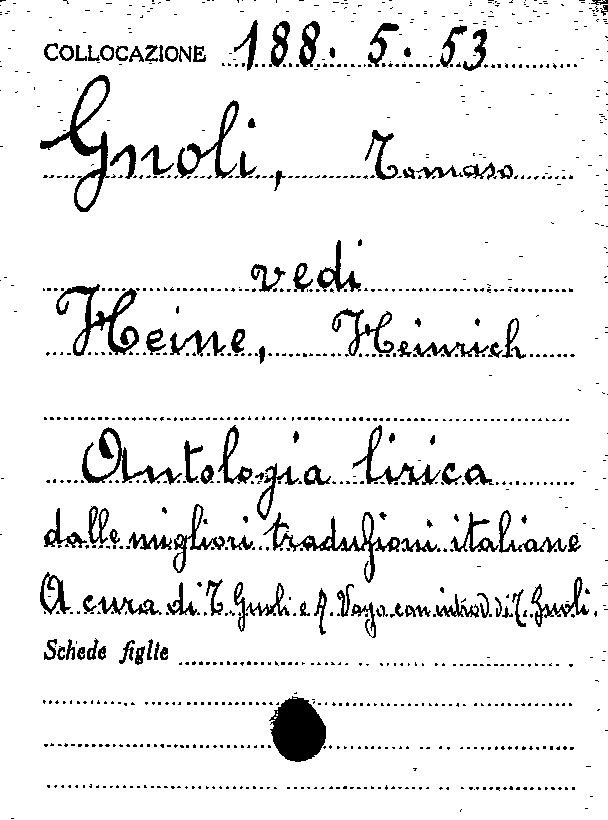 COLLOCAZIONE 188. 5. 53
Gnoli, Tomaso
vedi
Heine, Heinrich
Antologia lirica
dalle migliori traduzioni italiane
A cura di T. Gnoli e A. Vago con introd. di T. Gnoli.
Schede figlie